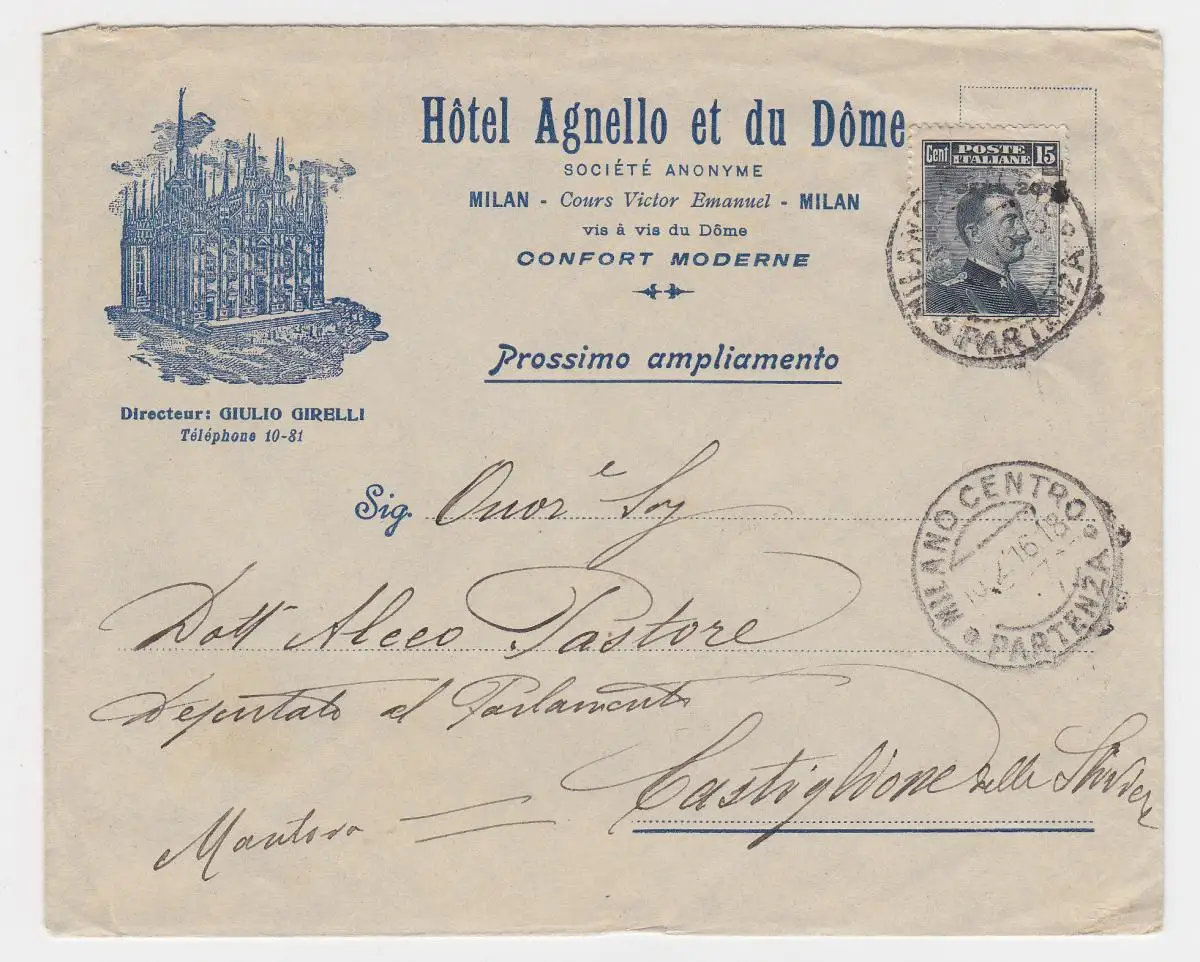 Hôtel Agnello et du Dôme
SOCIÉTÉ ANONYME
MILAN - Cours Victor Emanuel - MILAN
vis à vis du Dôme
CONFORT MODERNE
Prossimo ampliamento
Directeur: GIULIO GIRELLI
Téléphone 10-81
Cent POSTE ITALIANE 15
MILANO PARTENZA
MILANO CENTRO PARTENZA
16 18
Sig. Onor e
Dott Alceo Pastore
Deputato al Parlamento
Castiglione delle Stiviere
Mantova